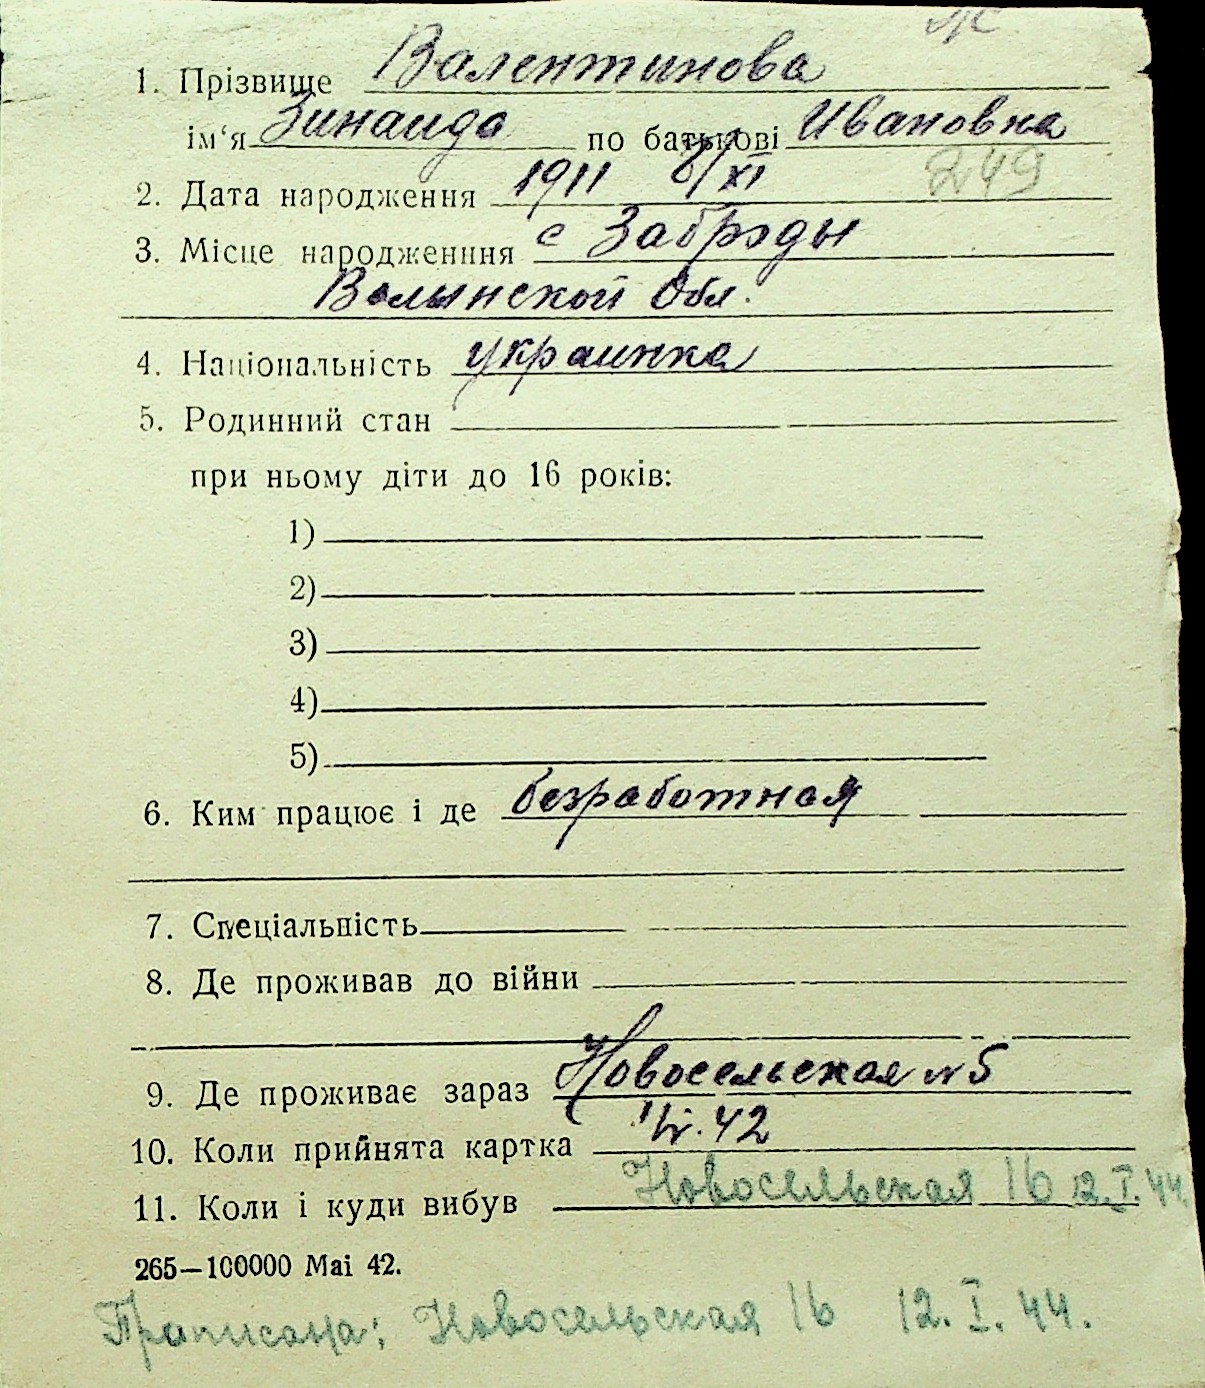 Ж
1. Прізвище Валентинова
ім‘я Зинаида по батькові Ивановна
249
2. Дата народження 1911 8/XI
3. Місце народженння с Забрэды
Волынской Обл.
4. Національність украинка
5. Родинний стан
при ньому діти до 16 років:
1)
2)
3)
4)
5)
6. Ким працює і де безработная
7. Спеціальність
8. Де проживав до війни
9. Де проживає зараз Новосельская №5
10. Коли прийнята картка 42
11. Коли і куди вибув Новосельская 16 12.I.44.
265—100000 Mai 42.
Прописана: Новосельская 16 12.I.44.